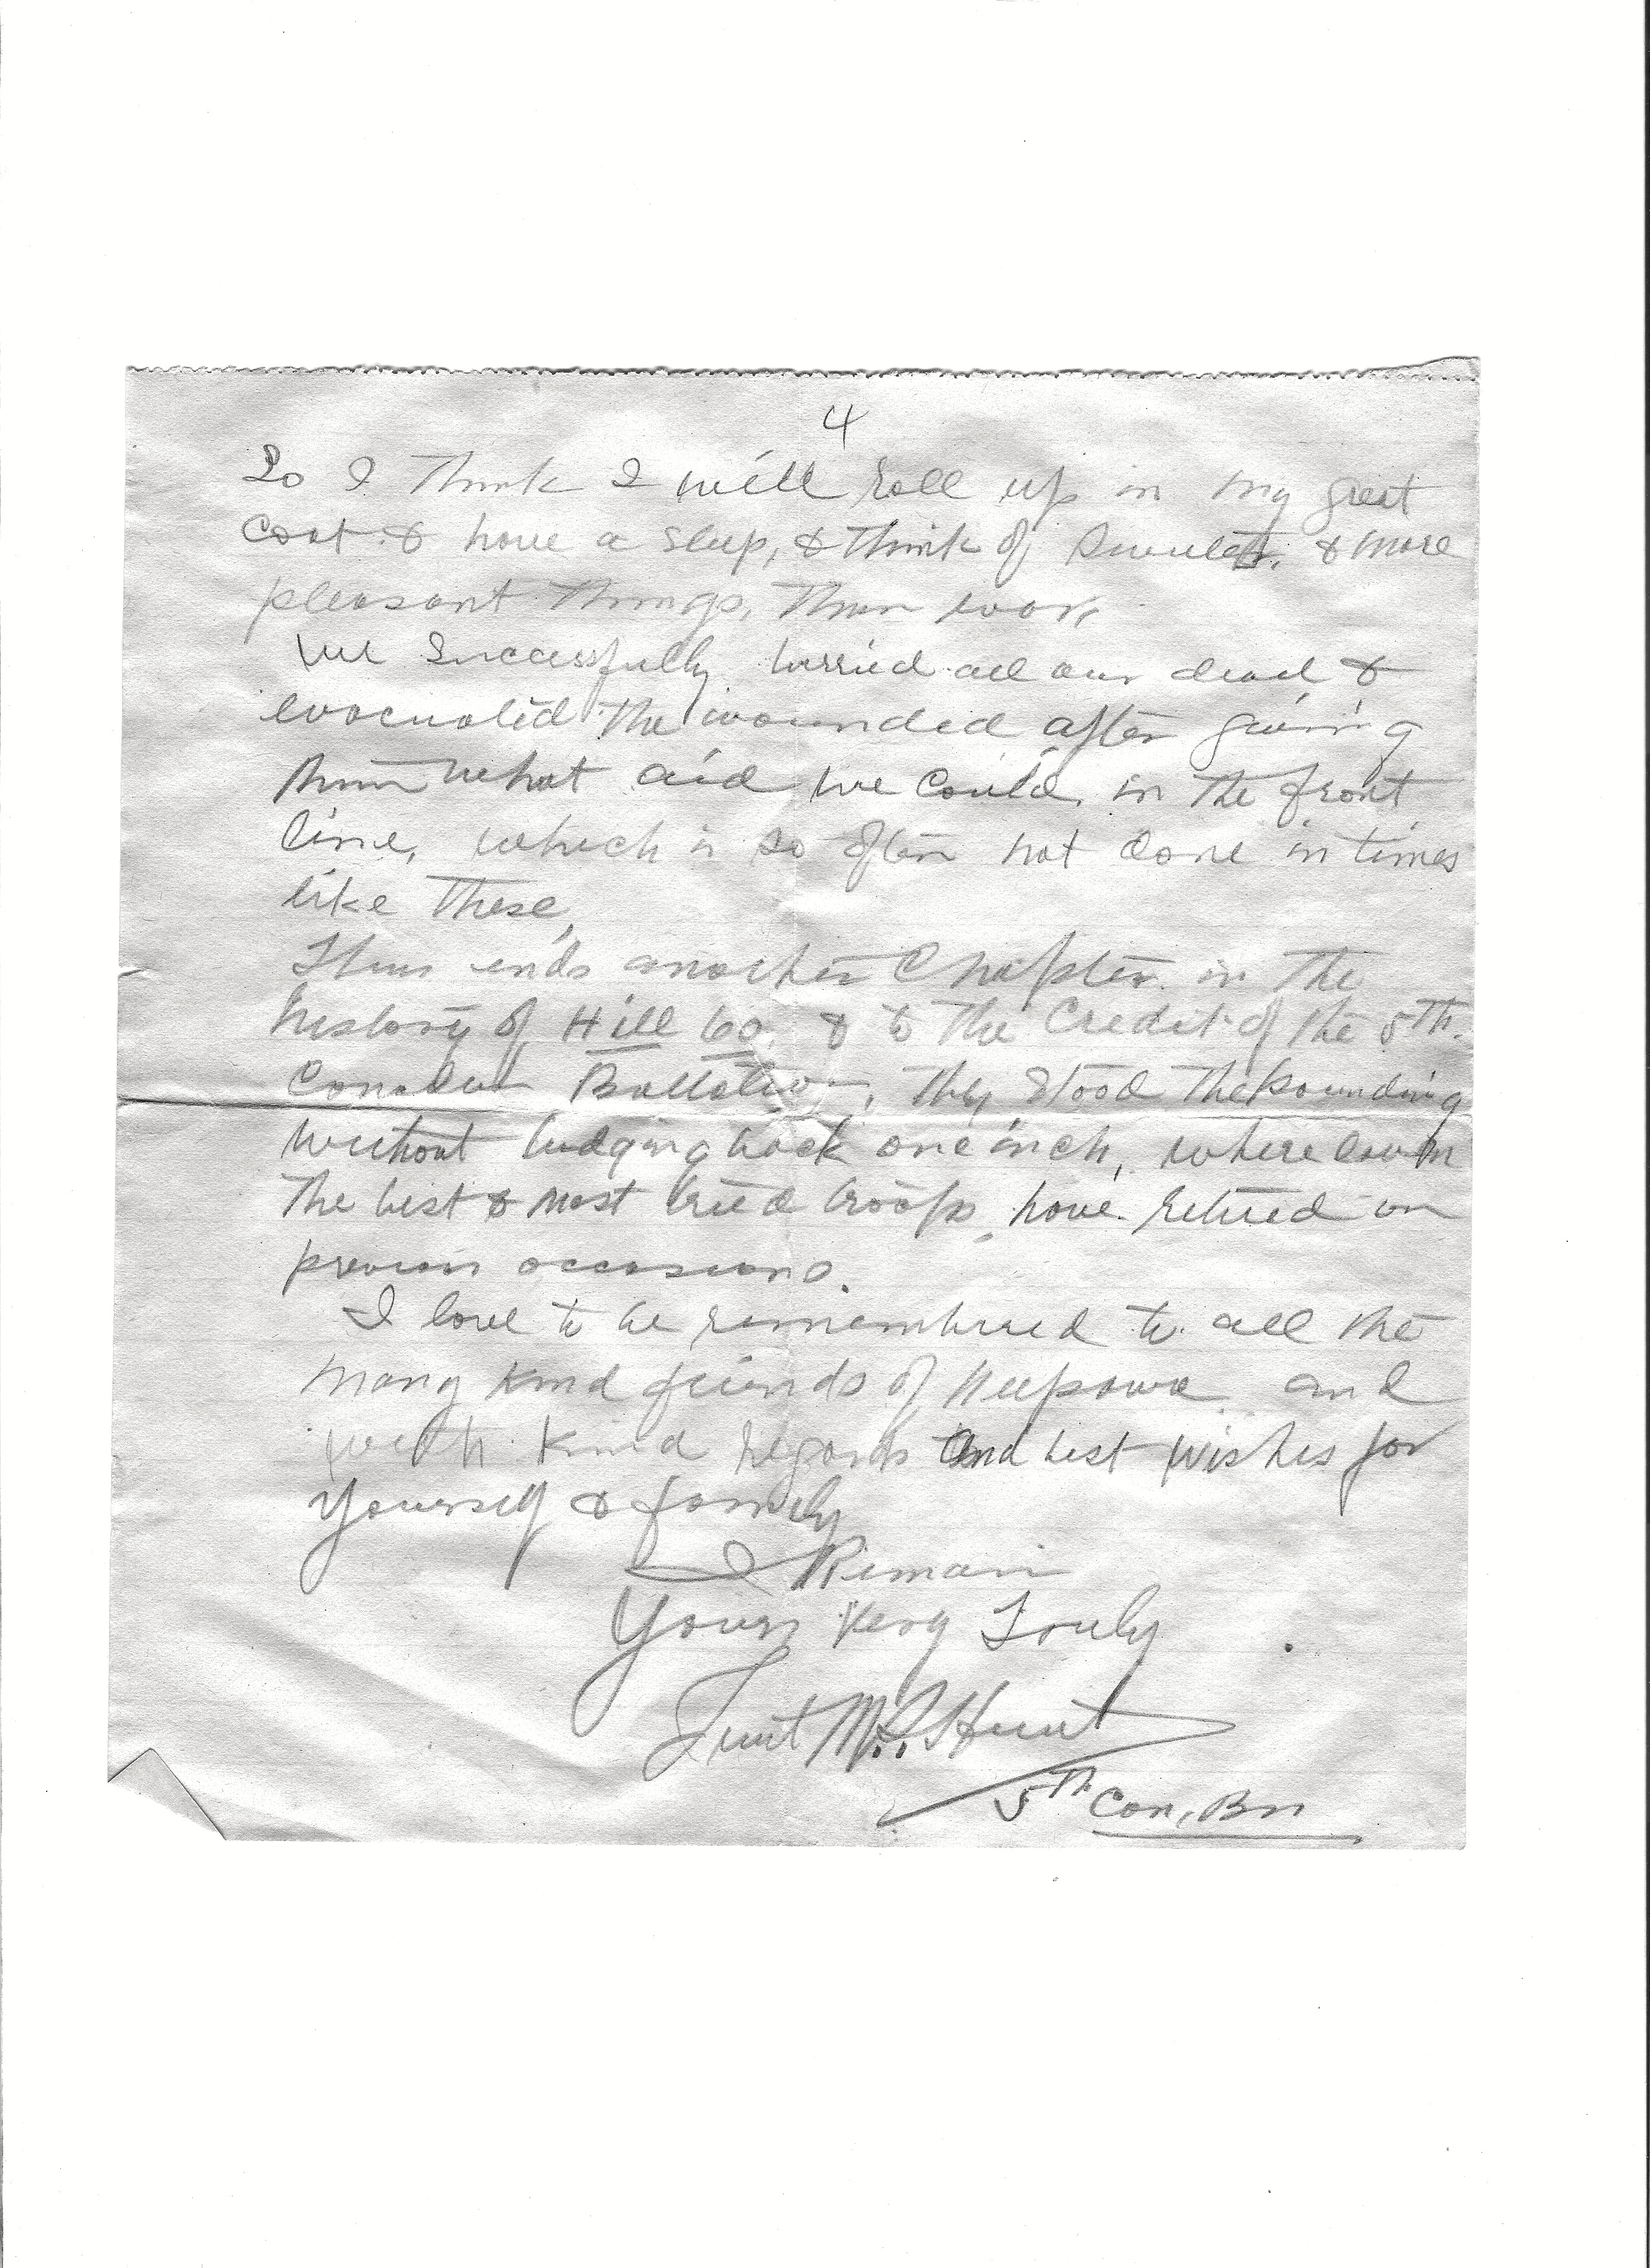 4
So I think I will roll up in my great
coat & have a sleep, & think of sweeter, & more
pleasant things, than war,
We Successfully burried all our dead, &
evacuated the wounded after giving
them what aid we could, in the front
line, which is so often not done in times
like these,
Thus ends another Chapter in the
history of Hill 60 & to the Credit of the 5th
Canadian Battalion, they stood the pounding
without budging back one inch, where even
the best & most tried troops have retired on
previous occasions.
I love to be remembered to all the
many kind friends of Neepawa and
with kind regards and best wishes for
yourself & family
I Remain
Yours Very Truly
Hunt
5th Can, Bn